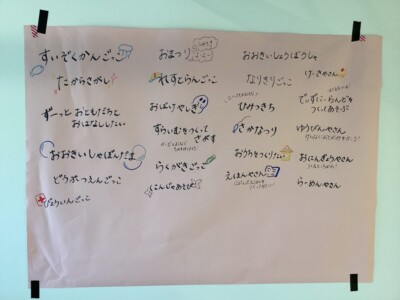 すいぞくかんごっこ
たからさがし
ずーっと おともだちと
おはなししたい
おおきいしゃぼんだま
どうぶつえんごっこ
びょういんごっこ
おまつり
れすとらんごっこ
おばけやしき
すらいむをつくって
らくがきごっこ
にんじゃあそび
おおきいしょうぼうしゃ
なりきりごっこ
ひみつきち
さかなつり
おうちをつくりたい
えほんやさん
けーきやさん
でぃずにーらんどを
つくってあそぶ
ゆうびんやさん
おにぎりやさん
らーめんやさん